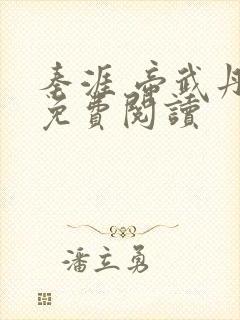 秦涯 帝武丹
免費閱讀
潘立勇